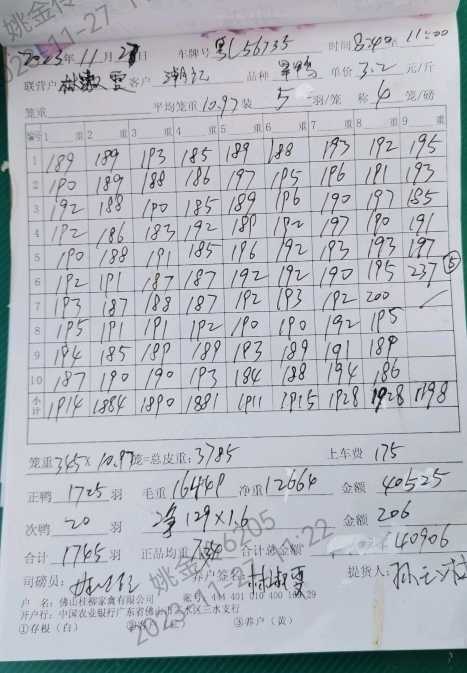 2023年11月27日 车牌号 粤L56735 时间 8:40 至 11:00
联营户 客户 品种 单价 3.2 元/斤
笼重 平均笼重 10.97 装 5 羽/笼 称 4 笼/磅
编号 1 重 2 重 3 重 4 重 5 重 6 重 7 重 8 重 9 重
1 189 189 193 185 189 188 193 192 195
2 190 189 188 186 197 195 196 191 193
3 192 188 190 185 189 196 190 197 185
4 192 186 183 192 189 192 197 190 191
5 190 188 191 185 196 192 193 193 197
6 192 191 187 187 192 192 190 195 237 ⑤
7 193 187 188 187 192 193 192 200 ✓
8 195 191 191 192 190 190 192 195
9 194 185 189 189 193 189 191 189
10 187 190 190 193 184 188 194 186
小计 1914 1884 1890 1881 1911 1915 1928 1928 1198
笼重 345 × 10.97 笼=总皮重: 3785 上车费 175
正鸭 1725 羽 毛重 16449 净重 12664 金额 40525
次鸭 20 羽 净 129×1.6 金额 206
合计 1745 羽 正品均重 7.34 合计总金额 40906
司磅员: 养户签名: 提货人:
户 名: 佛山桂柳家禽有限公司
开户行: 中国农业银行广东省佛山市三水区三水支行
①存根(白) ③养户(黄)